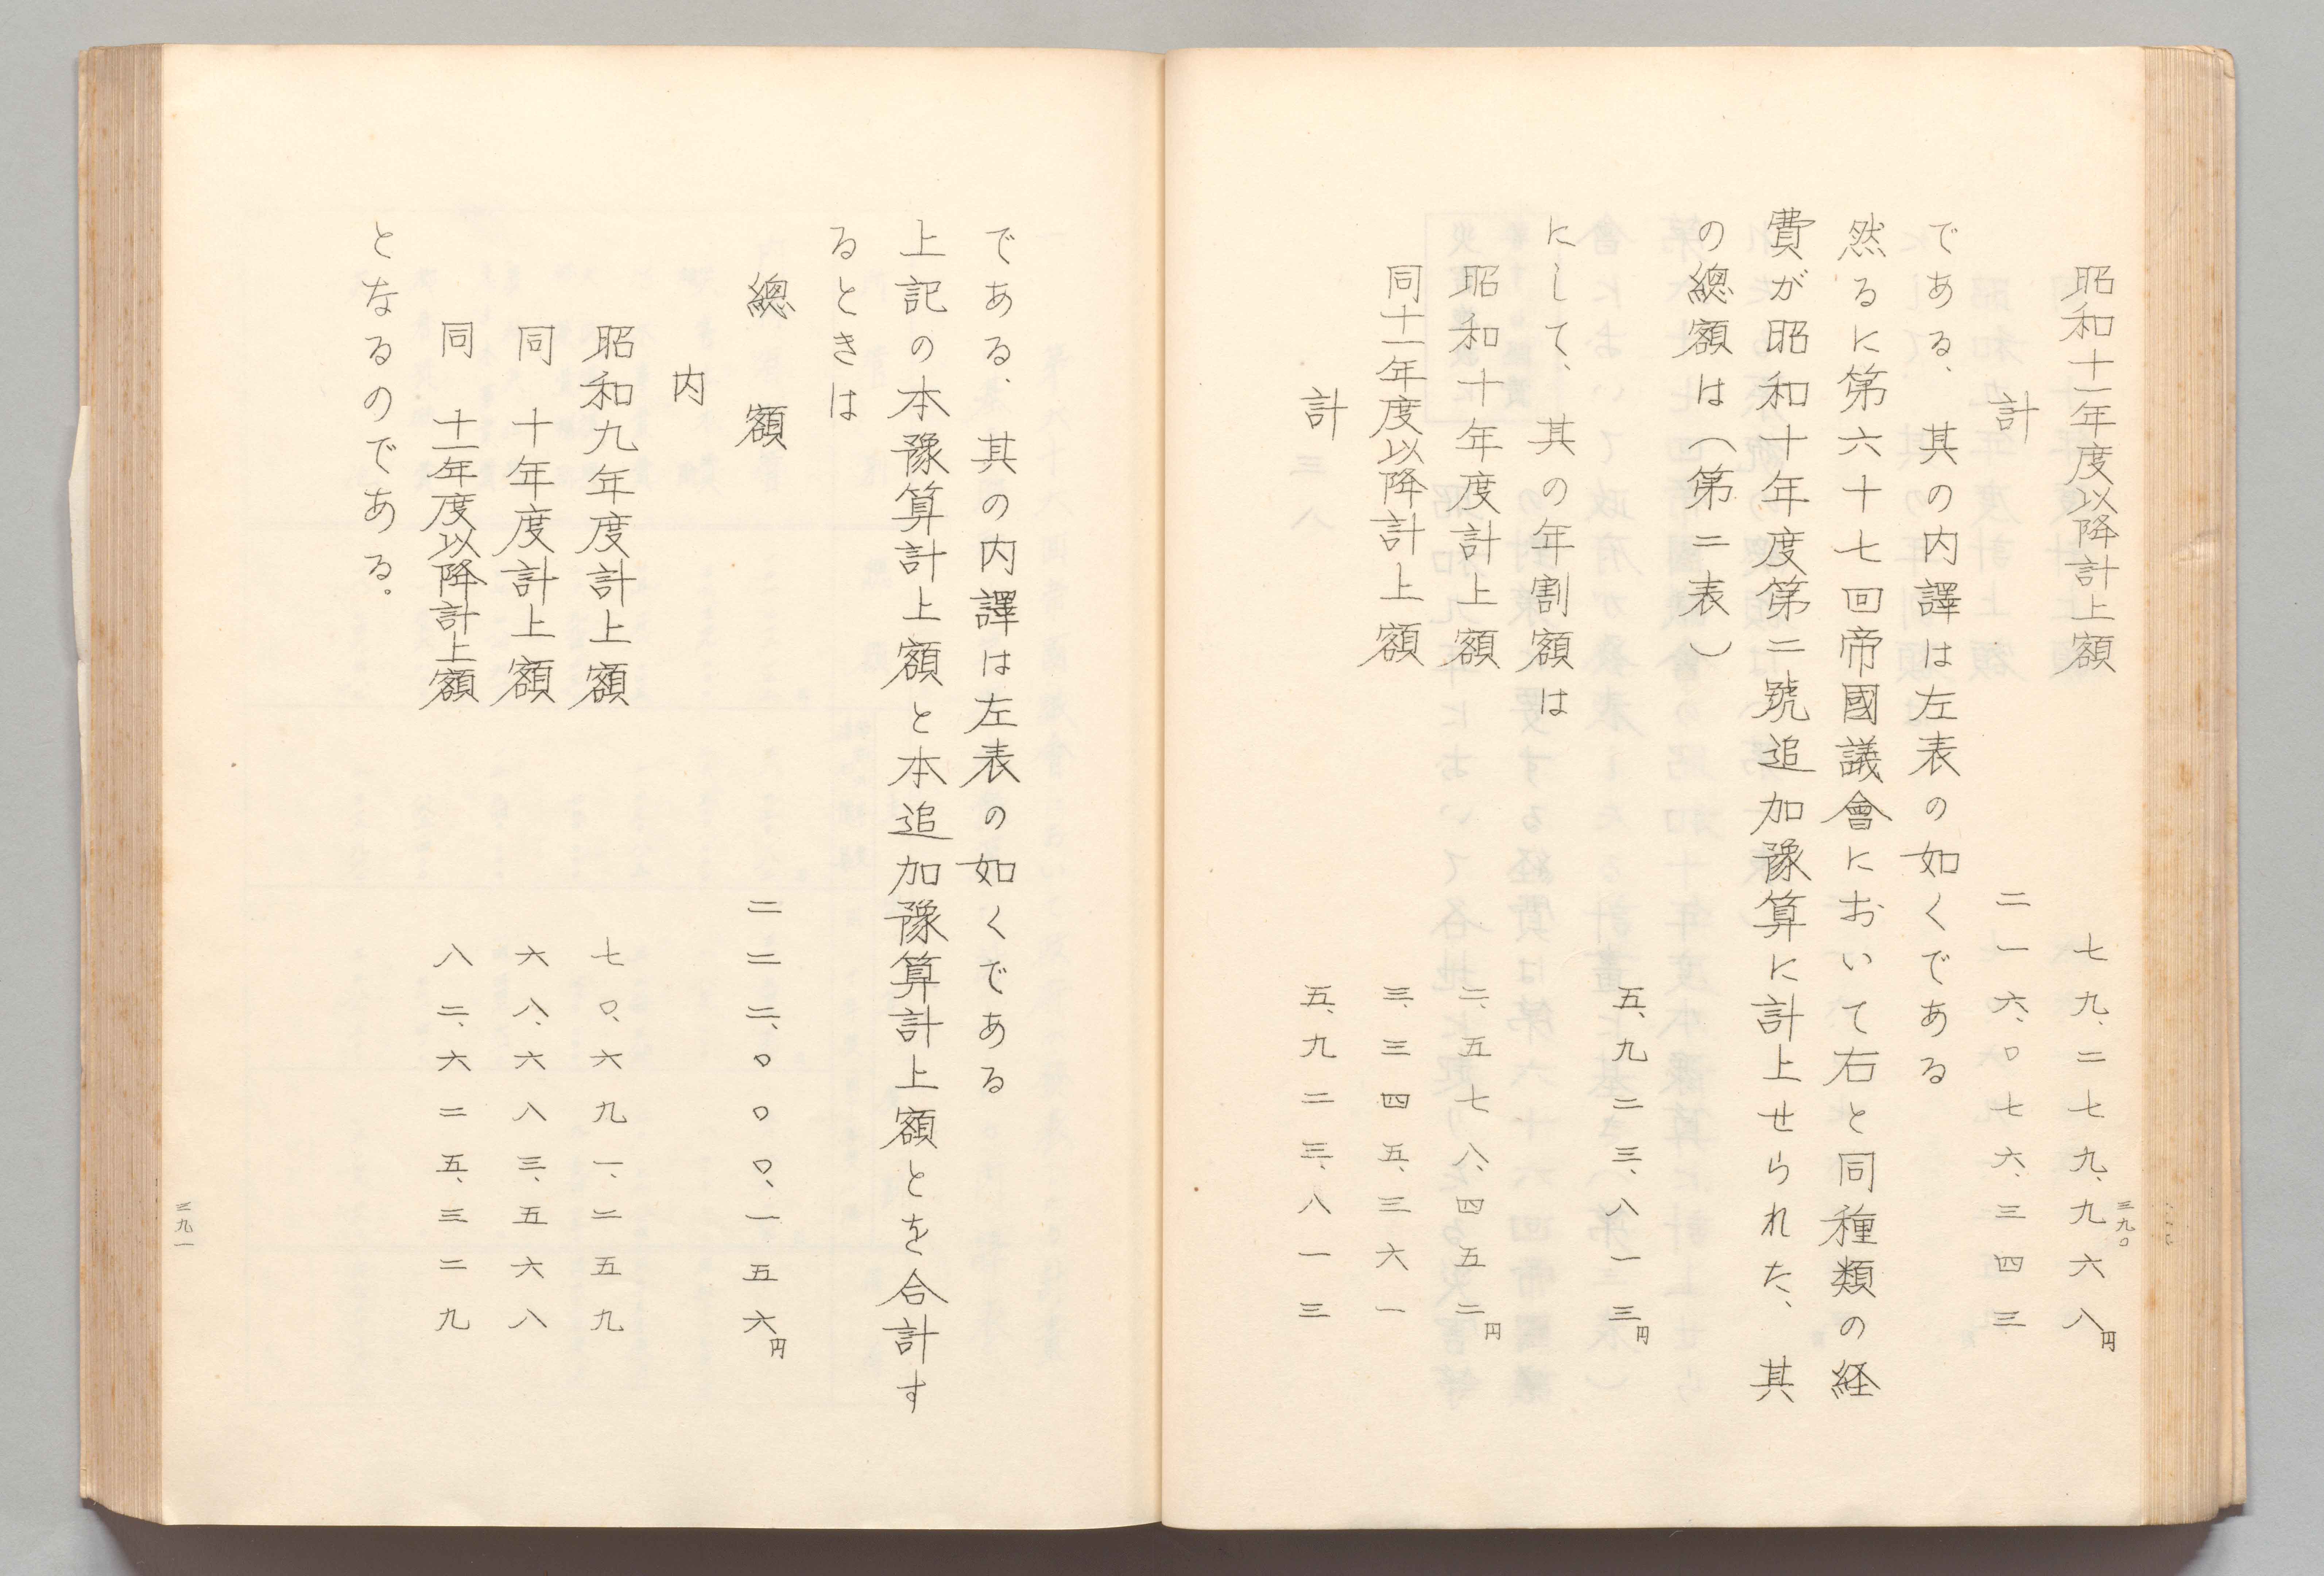 昭和十一年度以降計上額 七九、二七九、九六八円
計 二一六、〇七六、三四三
である、其の内譯は左表の如くである
然るに第六十七回帝國議會において右と同種類の経
費が昭和十年度第二號追加豫算に計上せられた、其
の總額は(第二表)
五、九二三、八一三円
にして、其の年割額は
昭和十年度計上額 二、五七八、四五二円
同十一年度以降計上額 三、三四五、三六一
計 五、九二三、八一三
三九〇
である、其の内譯は左表の如くである
上記の本豫算計上額と本追加豫算計上額とを合計す
るときは
總額 二二二、〇〇〇、一五六円
内
昭和九年度計上額 七〇、六九一、二五九
同 十年度計上額 六八、六八三、五六八
同 十一年度以降計上額 八二、六二五、三二九
となるのである。
三九一